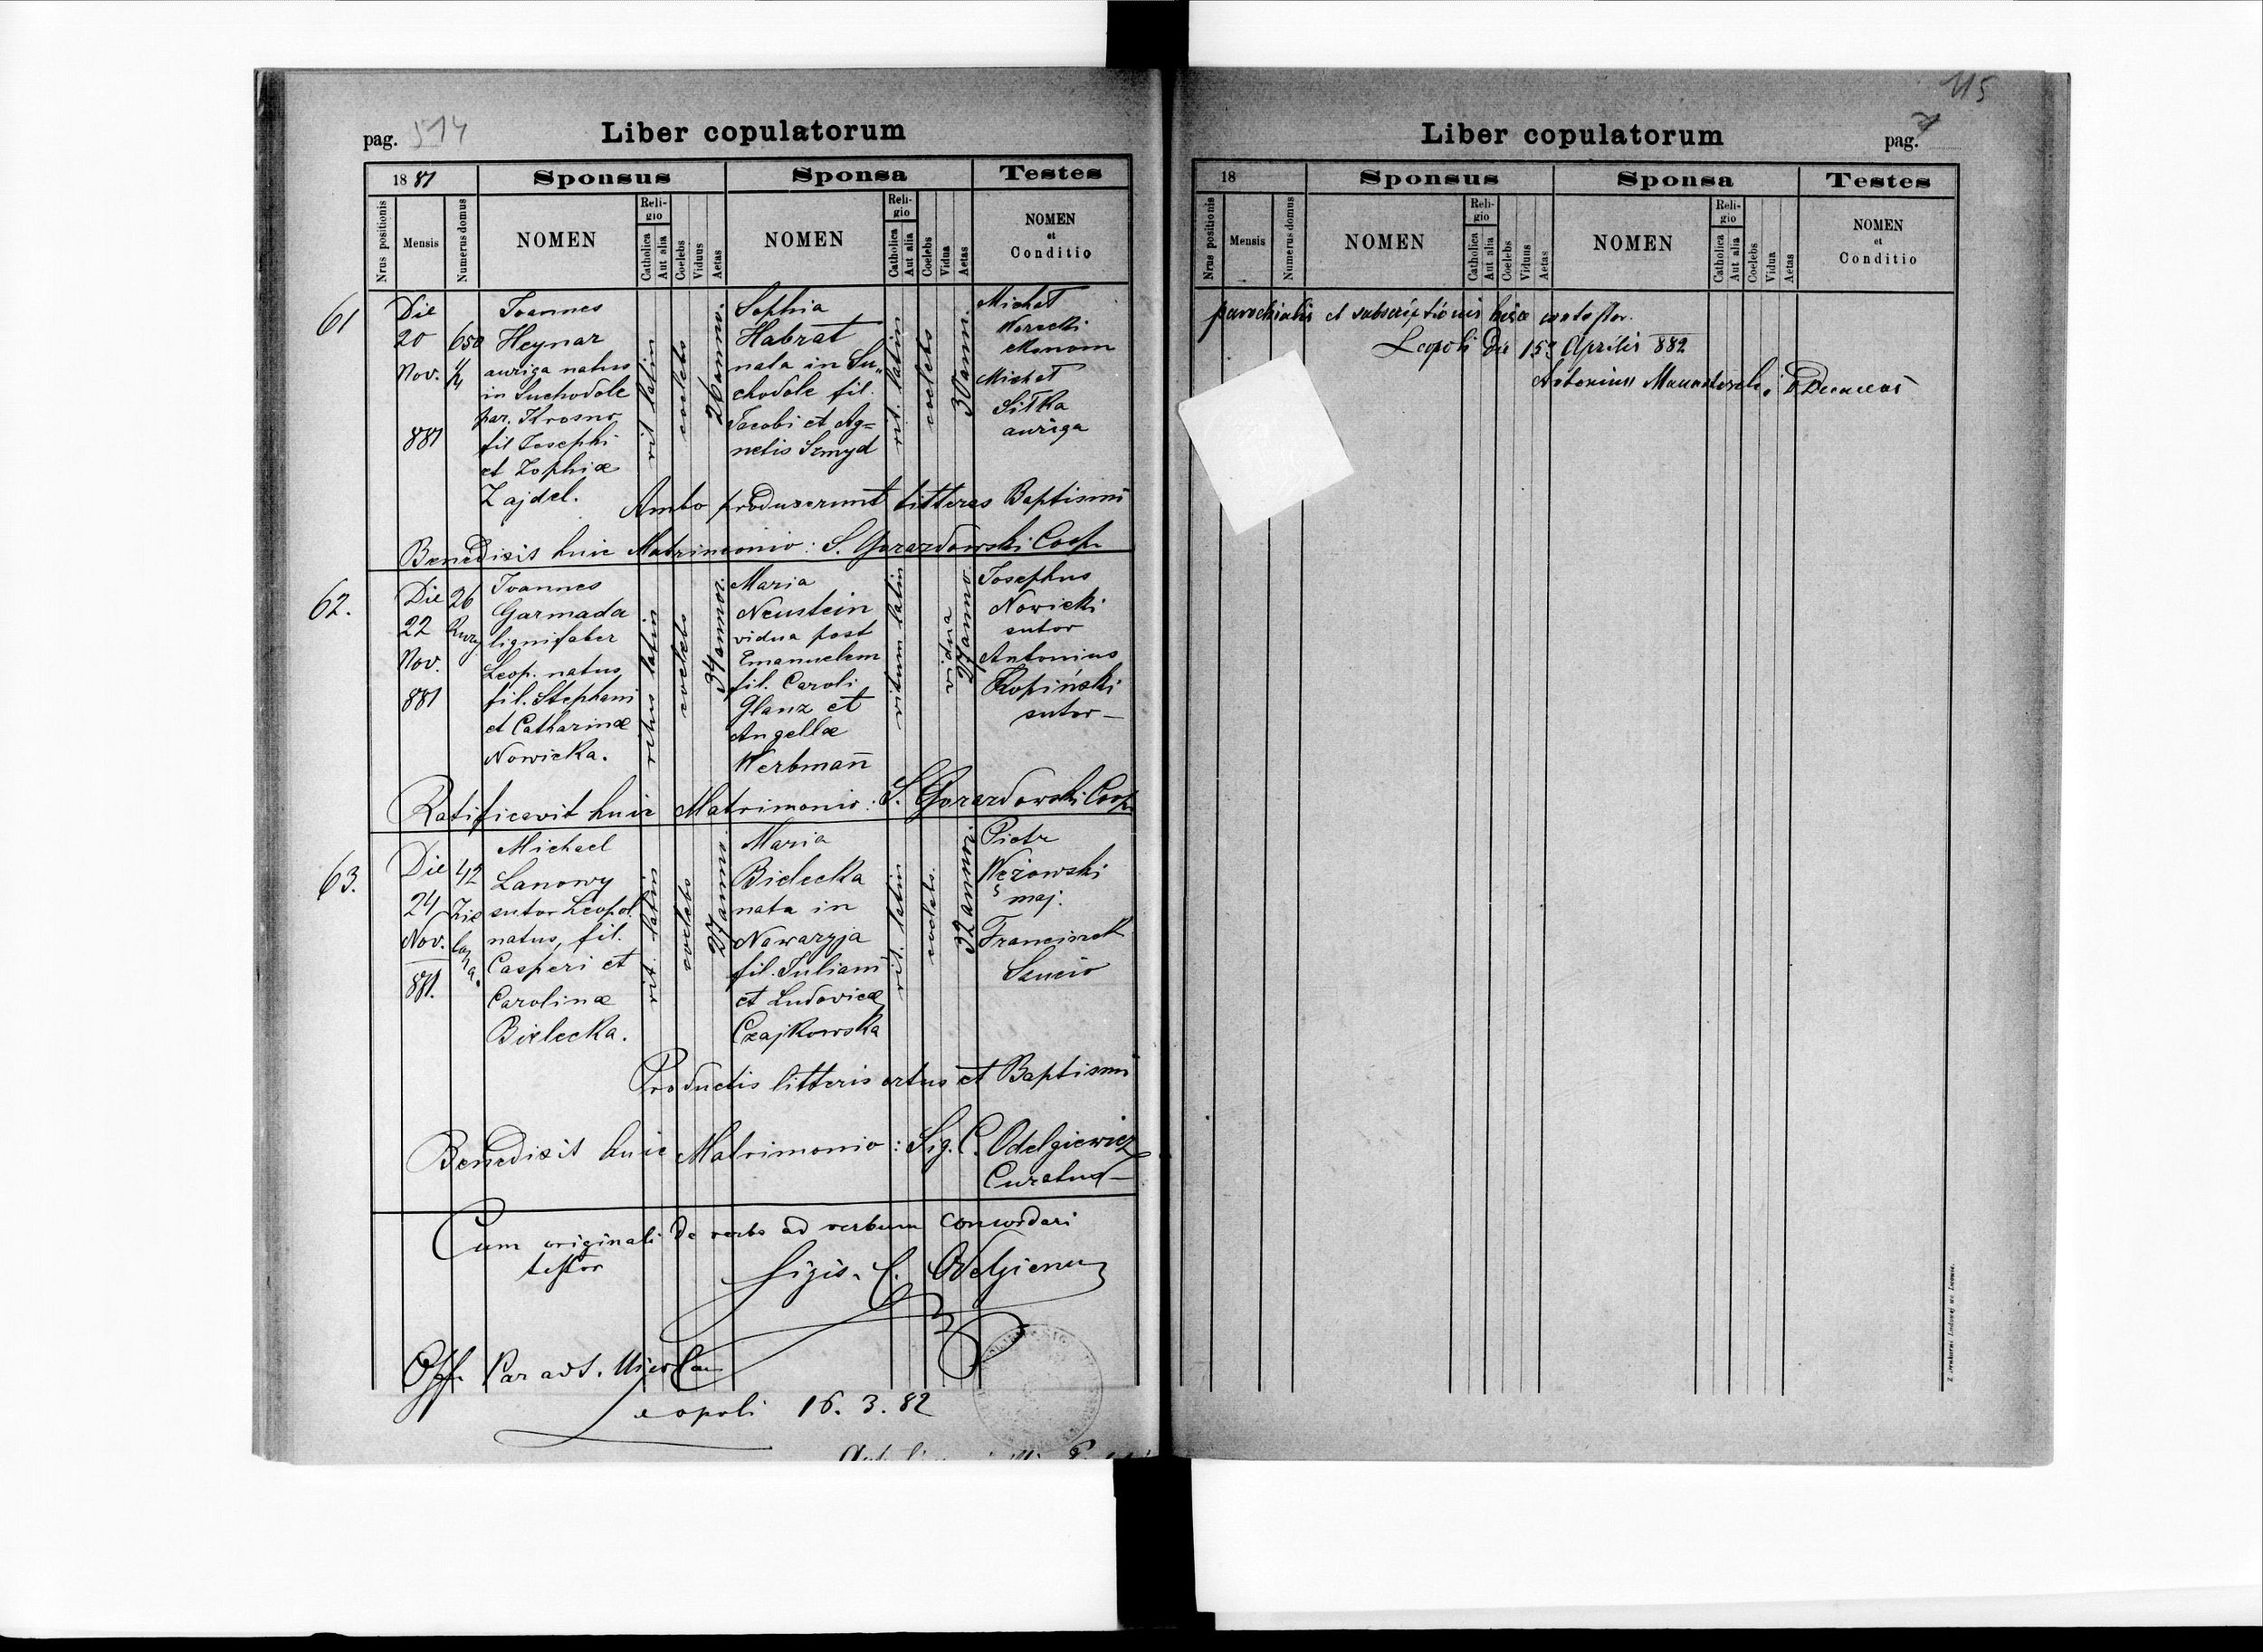 pag. 514
Liber copulatorum
1881
Sponsus
Sponsa
Testes
Nrus positionis
Mensis
Numerus domus
NOMEN
Religio
Catholica
Aut alia
Coelebs
Viduus
Aetas
NOMEN
Religio
Catholica
Aut alia
Coelebs
Vidua
Aetas
NOMEN
et
Conditio
61
Die
20
Nov.
881
650
4/4
Joannes
Heynar
auriga natus
in Suchodole
par. Krosno
fil Josephi
et Zophiæ
Zajdel.
rit latin
coelebs
26 anno.
Sophia
Habrat
nata in Su„
chodole fil.
Jacobi et Ag=
netis Szmyd
rit. latin
coelebs
30 ann.
Michał
Michał
Sitka
auriga
Ambo produxerunt litteras Baptismi
Benedixit huic Matrimonio: S. Gorazdowski Coop.
62.
Die
22
Nov.
881
26
Rury
Joannes
Garmada
lignifaber
Leop. natus
fil. Stephani
et Catharinæ
Nowicka.
ritus latin
coelebs
34 annor.
Maria
Neustein
vidua post
Emanuelem
fil. Caroli
Glanz et
Angellæ
Werbmañ
ritum latin
vidua
27 anno.
Josephus
Nowicki
sutor
Antonius
Kopiński
sutor –
Ratificavit huic Matrimonio: S. Gorazdowski Coop.
63.
Die
24
Nov.
881.
42
Michael
Lanowy
sutor Leopol.
natus, fil.
Casperi et
Carolinæ
Bielecka.
rit. latin
coelebs
27 anno.
Maria
Bielecka
nata in
Nawaryja
fil. Juliani
et Ludovicæ
Czajkowska
rit. latin
coelebs.
32 annor.
Piotr
Wężowski
maj.
Franciszek
Productis litteris ortus et Baptismi
Benedixit huic Matrimonio: Sig. C. Odelgiewicz
Curatus –
Cum originali de verbo ad verbum concordari
testor
Off. Par ad S. Nicolau
Leopoli 16. 3. 82
115
Liber copulatorum
pag.
18
Sponsus
Sponsa
Testes
Nrus positionis
Mensis
Numerus domus
NOMEN
Religio
Catholica
Aut alia
Coelebs
Viduus
Aetas
NOMEN
Religio
Catholica
Aut alia
Coelebs
Vidua
Aetas
NOMEN
et
Conditio
parochialis et subscriptionis
Leopoli Die 15ª Aprilis 882
Antonius Decanus
Z drukarni Ludowej we Lwowie.